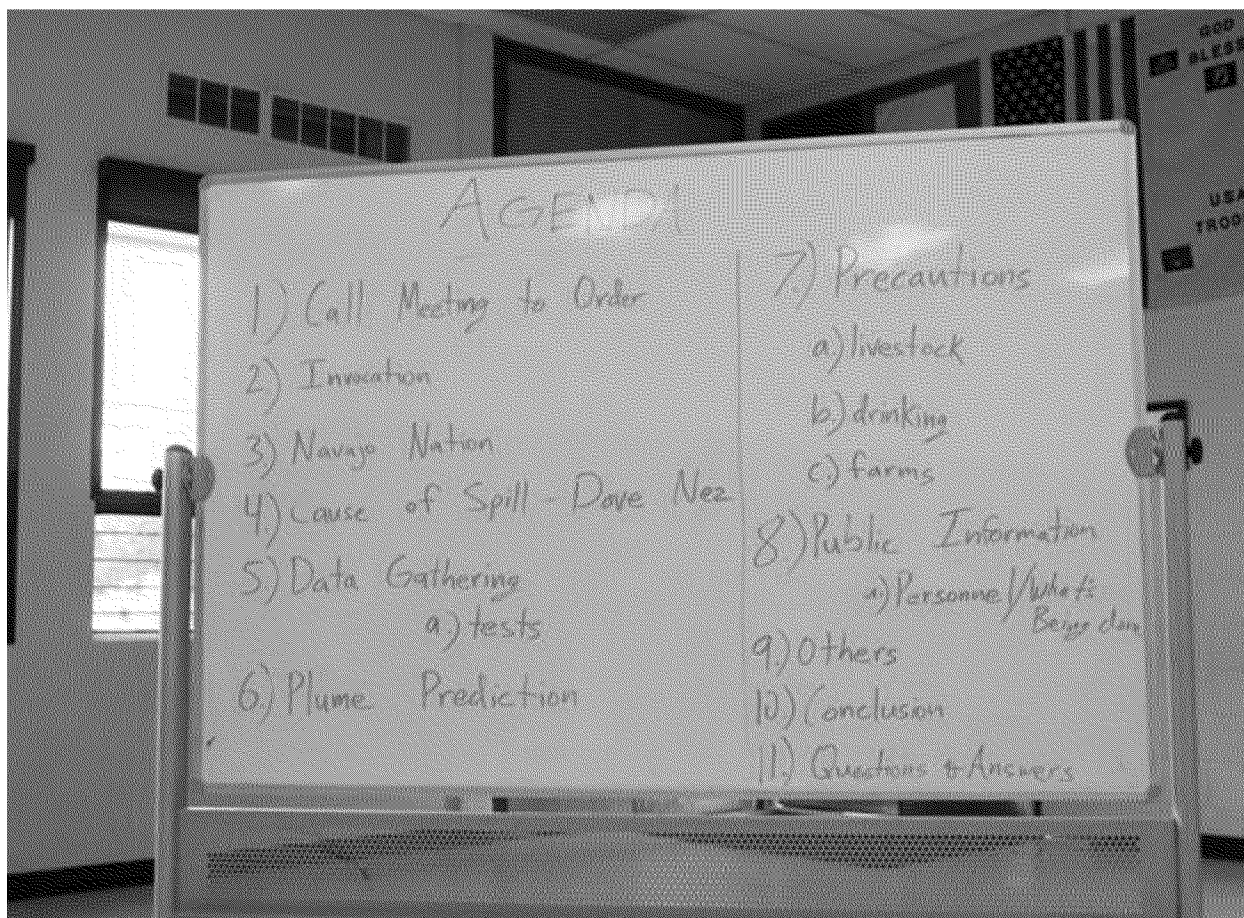 AGENDA
1.) Call Meeting to Order
2.) Invocation
3.) Navajo Nation
4.) Cause of Spill - Dave Nez
5.) Data Gathering
a.) tests
6.) Plume Prediction
7.) Precautions
a.) livestock
b.) drinking
c.) farms
8.) Public Information
a.) Personnel/What's
Being done
9.) Others
10.) Conclusion
11.) Questions & Answers
GOD
BLESS
USA